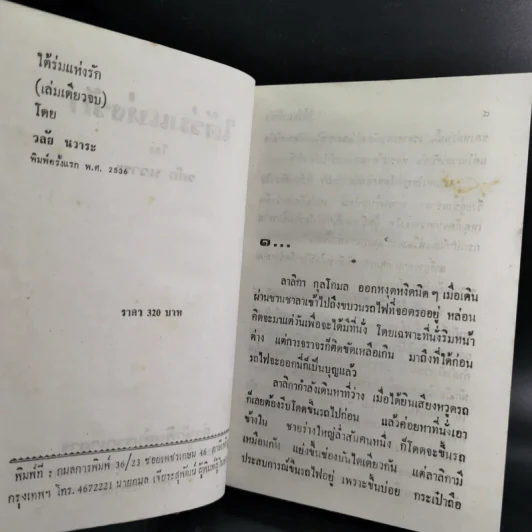 ใต้ร่มแห่งรัก
(เล่มเดียวจบ)
โดย
วลัย นวาระ
พิมพ์ครั้งแรก พ.ศ. 2536
ราคา 320 บาท
พิมพ์ที่ : กมลการพิมพ์ 36/23 ซอยเพชรเกษม 46
กรุงเทพฯ โทร. 4672221 นายกมล
๑...
ลาลิกา กุลโกมล ออกหงุดหงิดนิดๆ เมื่อเดิน
ผ่านชานชาลาเข้าไปถึงขบวนรถไฟที่จอดรออยู่ หล่อน
คิดจะมาแต่วันเพื่อจะได้มีที่นั่ง โดยเฉพาะที่นั่งริมหน้า
ต่าง แต่การจราจรก็ติดขัดเหลือเกิน มาถึงที่ได้ก่อน
รถไฟจะออกนี่ก็เป็นบุญแล้ว
ลาลิกากำลังเดินหาที่ว่าง เมื่อได้ยินเสียงหวูดรถ
ก็เลยต้องรีบโดดขึ้นรถไปก่อน แล้วค่อยหาที่นั่งเอา
ข้างใน ชายร่างใหญ่ล่ำสันคนหนึ่ง ก็โดดจะขึ้นรถ
เหมือนกัน แย่งขึ้นช่องบันไดเดียวกัน แต่ลาลิกามี
ประสบการณ์ขึ้นรถไฟอยู่ เพราะขึ้นบ่อย กระเป๋าถือ